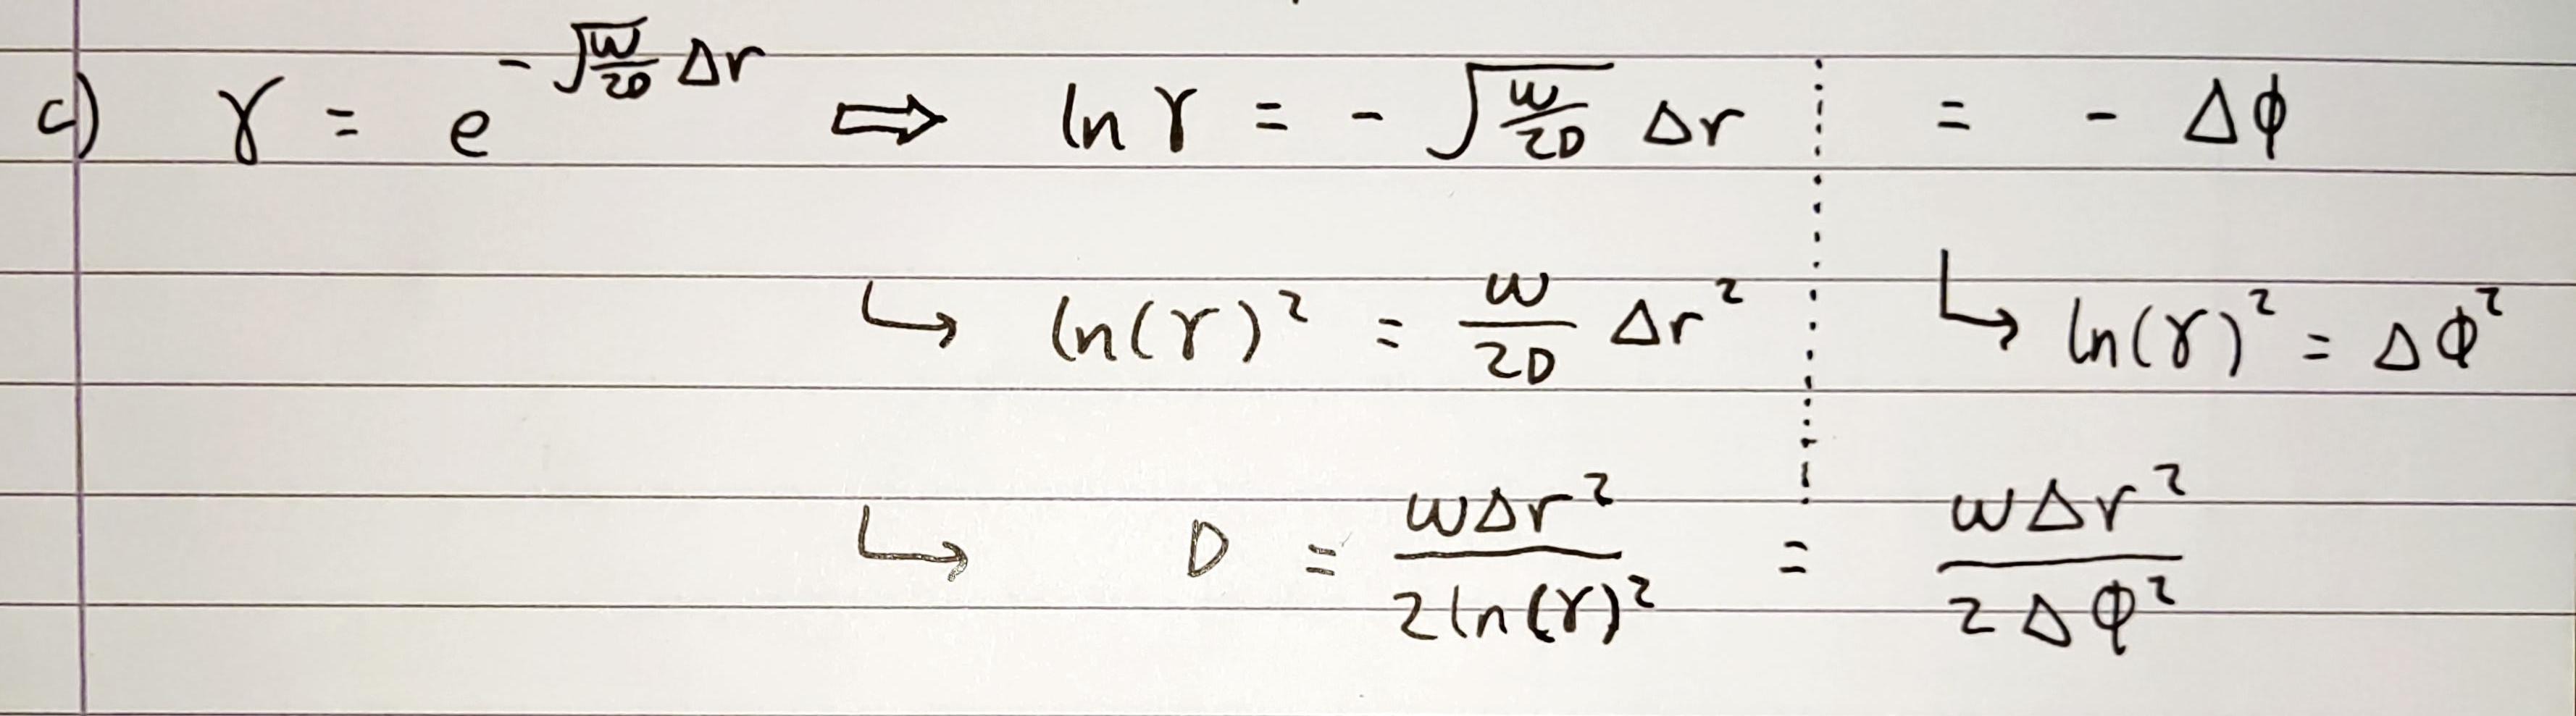 c) γ = e^{-√(ω/2D) Δr} ⇒ ln γ = -√(ω/2D) Δr = - Δϕ
↳ ln(γ)² = ω/2D Δr² ↳ ln(γ)² = Δϕ²
↳ D = ωΔr²/2ln(γ)² = ωΔr²/2Δϕ²